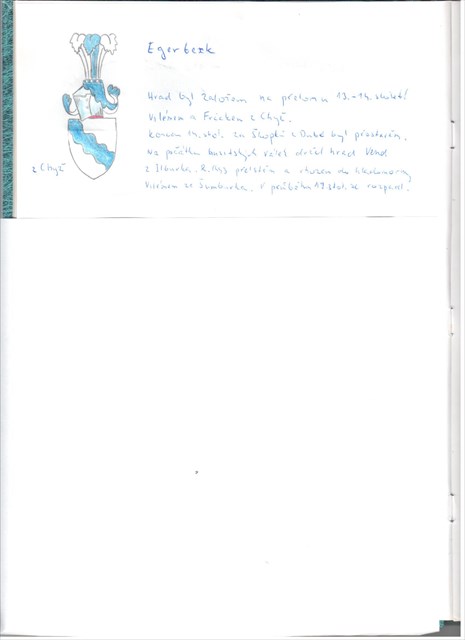 Egerberk
Hrad byl založen na přelomu 13.-14. století
Vilémem a Frickem z Chyš.
Koncem 14. stol. za Škopků z Dubé byl přestavěn.
Na počátku husitských válek držel hrad
z Ilburka. R. přelstěn a vhozen do hladomorny
Vilémem ze Šumburka. V průběhu 17. stol. se rozpadl.
z Chyš